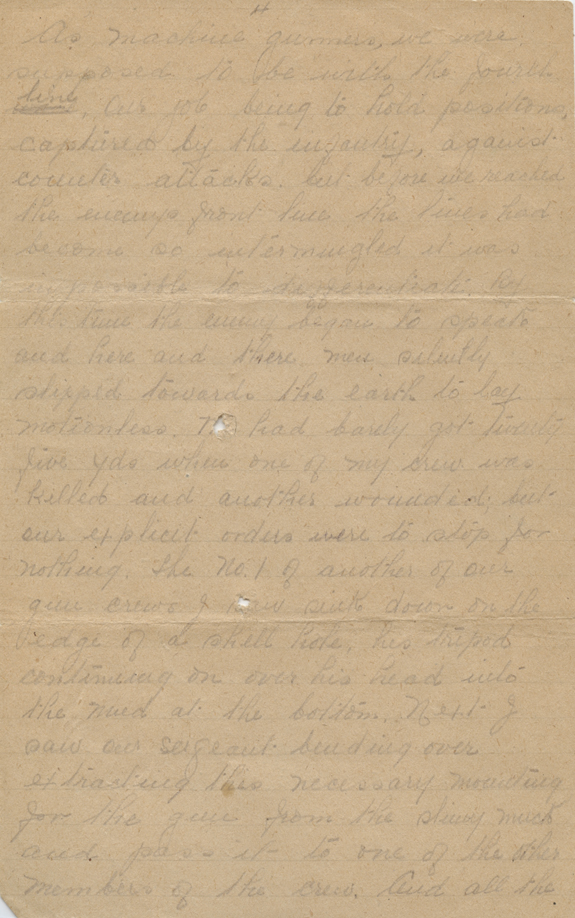 4
As machine gunners, we were
supposed to be with the fourth
line, Our job being to hold positions,
captured by the infantry, against
counter attacks. but before we reached
the enemys front line the lines had
become so intermingled it was
impossible to differentiate. By
this time the enemy began to
and here and there men silently
slipped towards the earth to lay
motionless. We had barely got twenty
five yds when one of my crew was
killed and another wounded, but
our explicit orders were to stop for
nothing. The No. 1 of another of our
gun crews I saw sink down on the
edge of a shell hole, his tripod
continuing on over his head into
the mud at the bottom. Next I
saw our sergeant bending over
extracting this necessary mounting
for the gun from the slimy muck
and pass it to one of the other
members of the crew. And all the